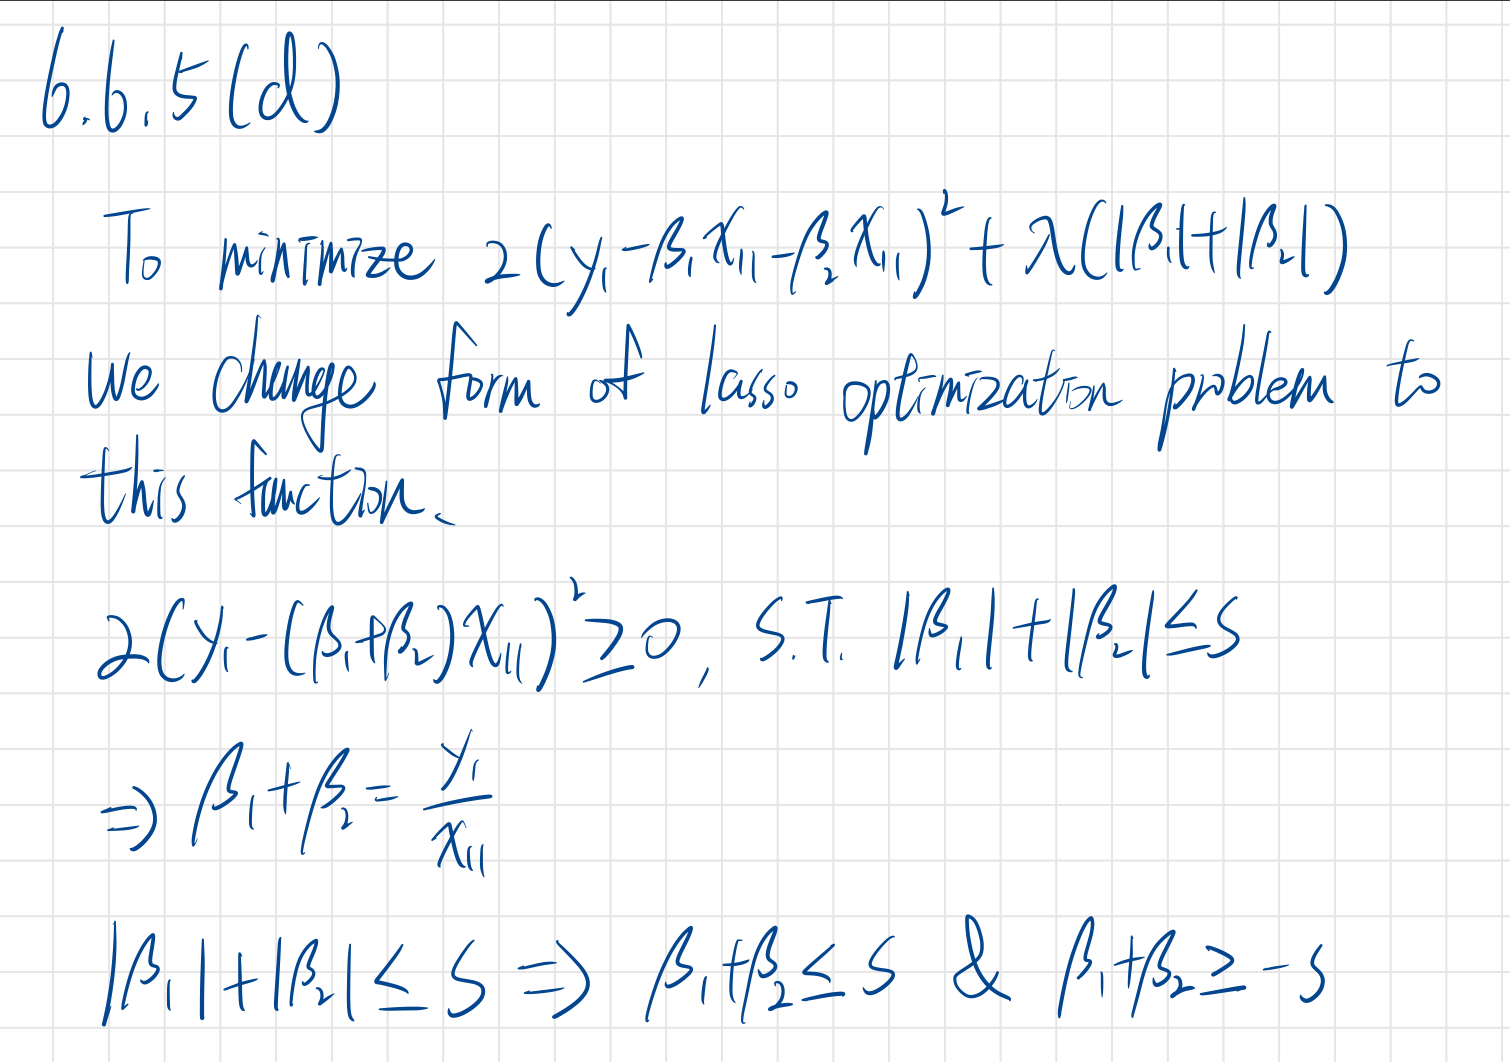 6.6.5(d)
To minimize 2(y₁-β₁x₁₁-β₂x₁₁)² + λ(|β₁|+|β₂|)
we change form of lasso optimization problem to
this function.
2(y₁-(β₁+β₂)x₁₁)² ≥ 0, S.T. |β₁|+|β₂| ≤ S
⇒ β₁+β₂ = y₁/x₁₁
|β₁|+|β₂| ≤ S ⇒ β₁+β₂ ≤ S & β₁+β₂ ≥ -S